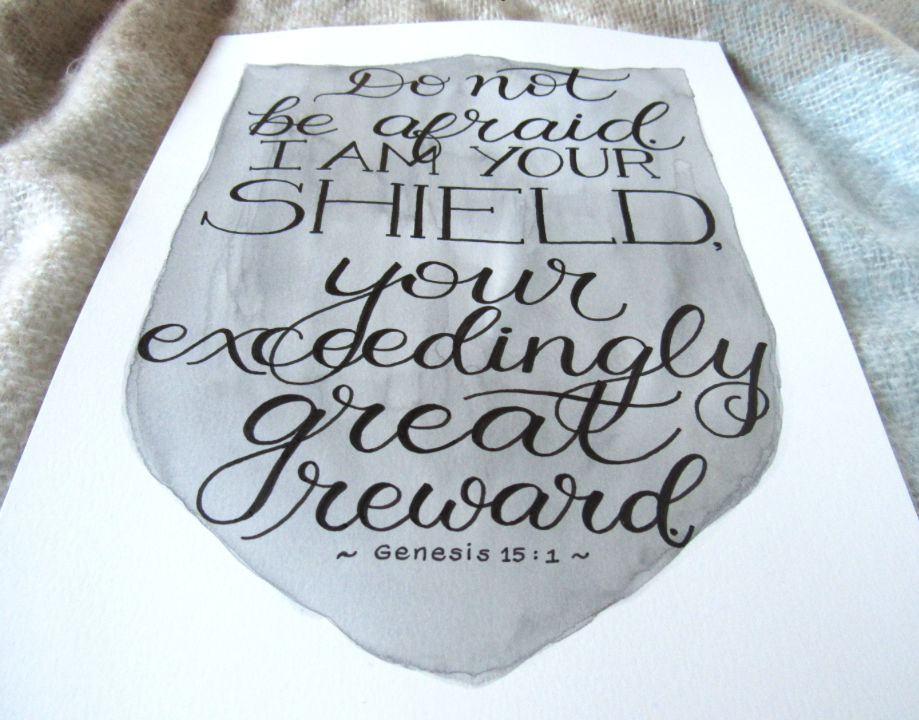 Do not
be afraid.
I AM YOUR
SHIELD,
your
exceedingly
great
reward.
~ Genesis 15:1 ~